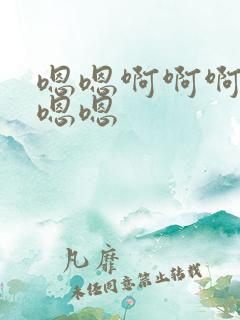 嗯嗯啊啊啊
嗯嗯
凡靡
未经同意禁止转载